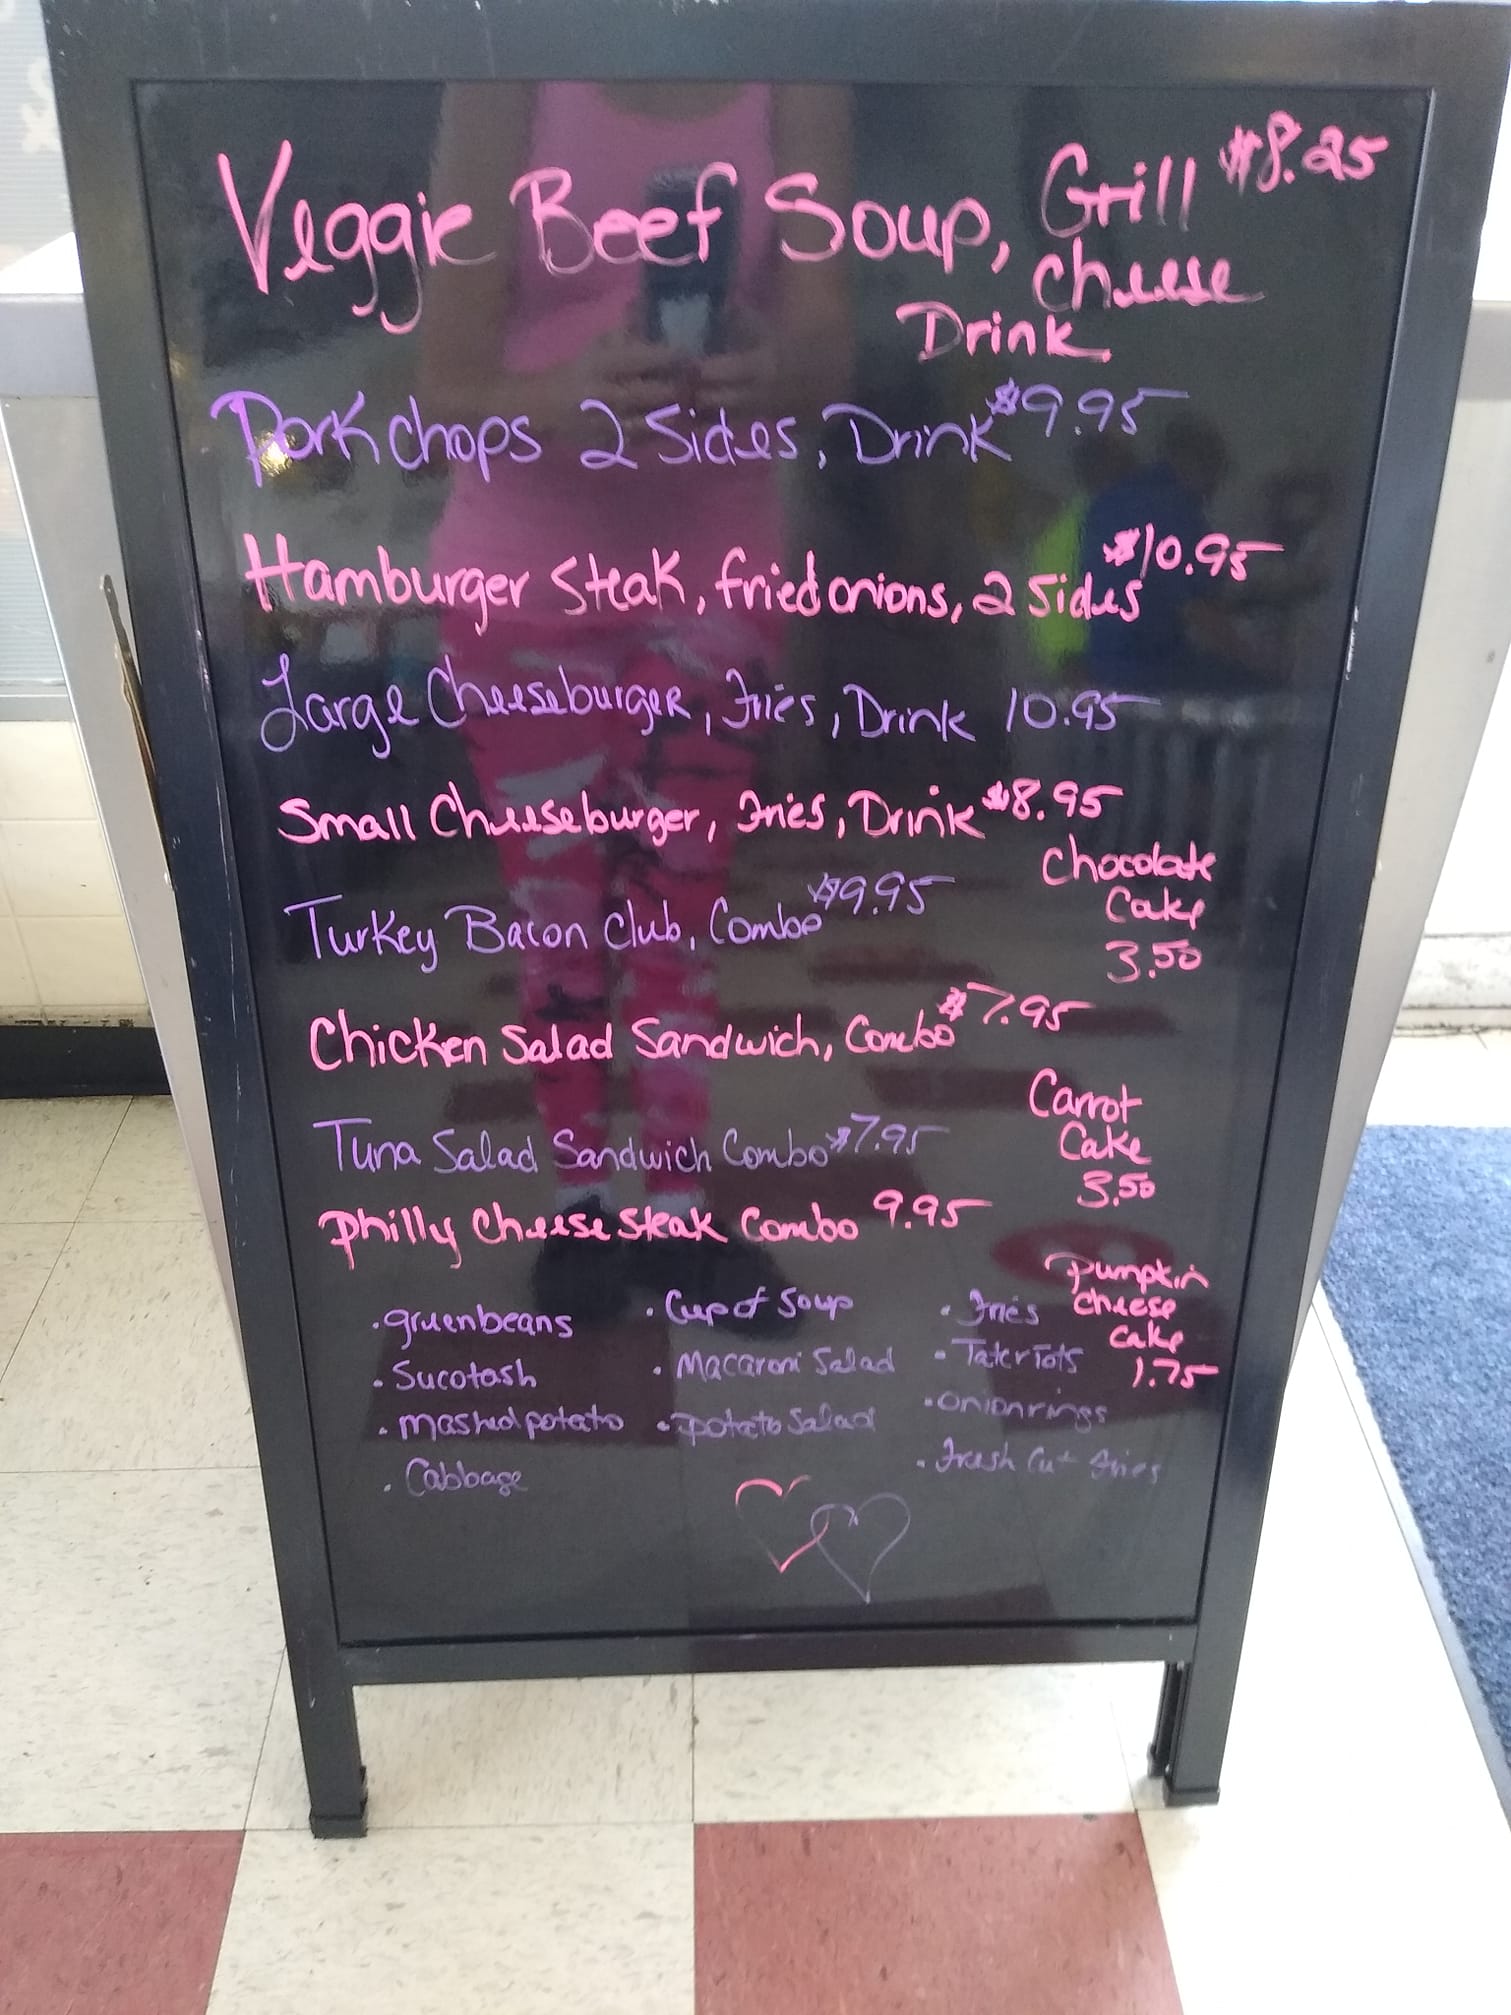 Veggie Beef Soup, Grill $8.25
cheese
Drink
Pork chops 2 Sides, Drink $9.95
Hamburger Steak, fried onions, 2 Sides $10.95
Large Cheeseburger, Fries, Drink 10.95
Small Cheeseburger, Fries, Drink $8.95
Chocolate
Cake
3.50
Turkey Bacon Club, Combo $9.95
Chicken Salad Sandwich, Combo $7.95
Carrot
Cake
3.50
Tuna Salad Sandwich Combo $7.95
Philly Cheese Steak Combo 9.95
Pumpkin
cheese
cake
1.75
· greenbeans
· Sucotash
· mashed potato
· Cabbage
· Cup of Soup
· Macaroni Salad
· potato Salad
· Fries
· Tater Tots
· onion rings
· Fresh Cut Fries